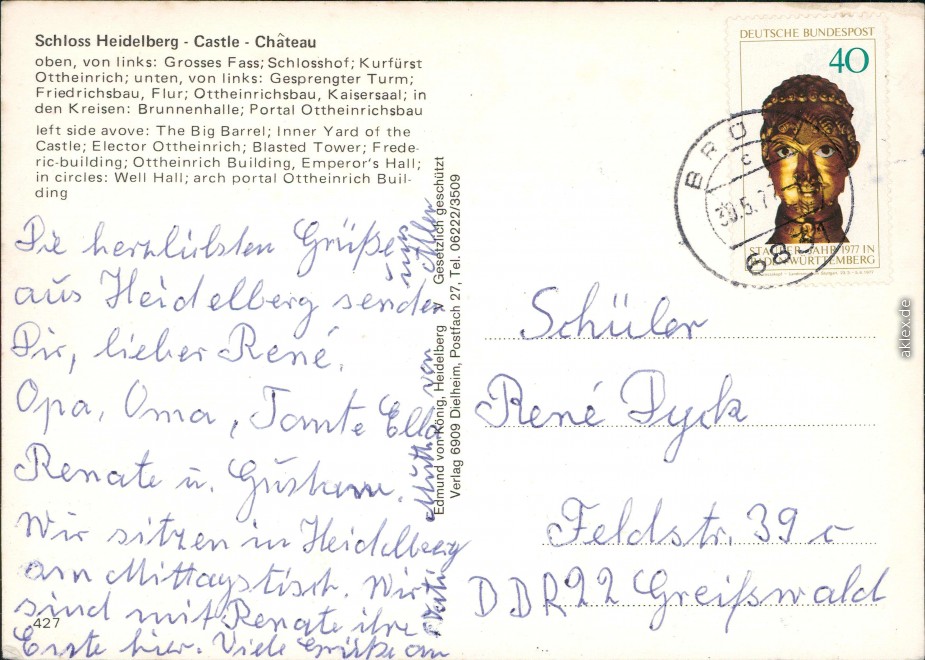 Schloss Heidelberg - Castle - Château
oben, von links: Grosses Fass; Schlosshof; Kurfürst
Ottheinrich; unten, von links: Gesprengter Turm;
Friedrichsbau, Flur; Ottheinrichsbau, Kaisersaal; in
den Kreisen: Brunnenhalle; Portal Ottheinrichsbau
left side avove: The Big Barrel; Inner Yard of the
Castle; Elector Ottheinrich; Blasted Tower; Frede-
ric-building; Ottheinrich Building, Emperor's Hall;
in circles: Well Hall; arch portal Ottheinrich Buil-
ding
Die herzlichsten Grüße
aus Heidelberg senden
Dir, lieber René,
Opa, Oma, Tante Ella
Renate u. Gustav.
Wir sitzen in Heidelberg
am Mittagstisch. Wir
sind mit Renate ihre
Ente hier. Viele Grüße an
Vati
Mutti von
uns allen
427
Edmund von König, Heidelberg Gesetzlich geschützt
Verlag 6909 Dielheim, Postfach 27, Tel. 06222/3509
DEUTSCHE BUNDESPOST
40
STAUFER-JAHR 1977 IN
BADEN-WÜRTTEMBERG
BRÜ
c
30.5.77
68
Schüler
René Dyck
Feldstr. 39 c
DDR 22 Greifswald
aklex.de